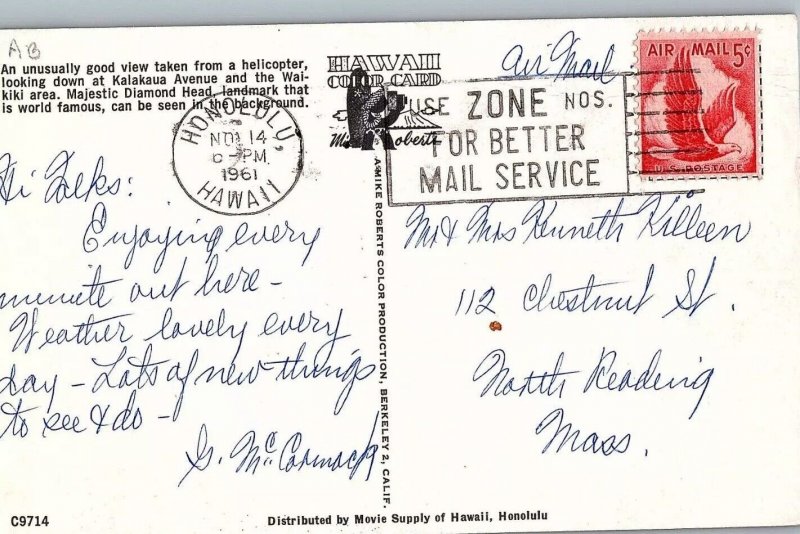 AB
An unusually good view taken from a helicopter,
looking down at Kalakaua Avenue and the Wai-
kiki area. Majestic Diamond Head, landmark that
is world famous, can be seen in the background.
HAWAII
COLOR CARD
Mike Roberts
Air Mail
AIR MAIL 5¢
U.S. POSTAGE
HONOLULU,
NOV 14
6 - PM
1961
HAWAII
USE ZONE NOS.
FOR BETTER
MAIL SERVICE
Hi Folks:
Enjoying every
minute out here -
Weather lovely every
day - Lots of new things
to see & do -
G. McCormack
A MIKE ROBERTS COLOR PRODUCTION, BERKELEY 2, CALIF.
Mr & Mrs Kenneth Killeen
112 Chestnut St.
North Reading
Mass.
C9714
Distributed by Movie Supply of Hawaii, Honolulu